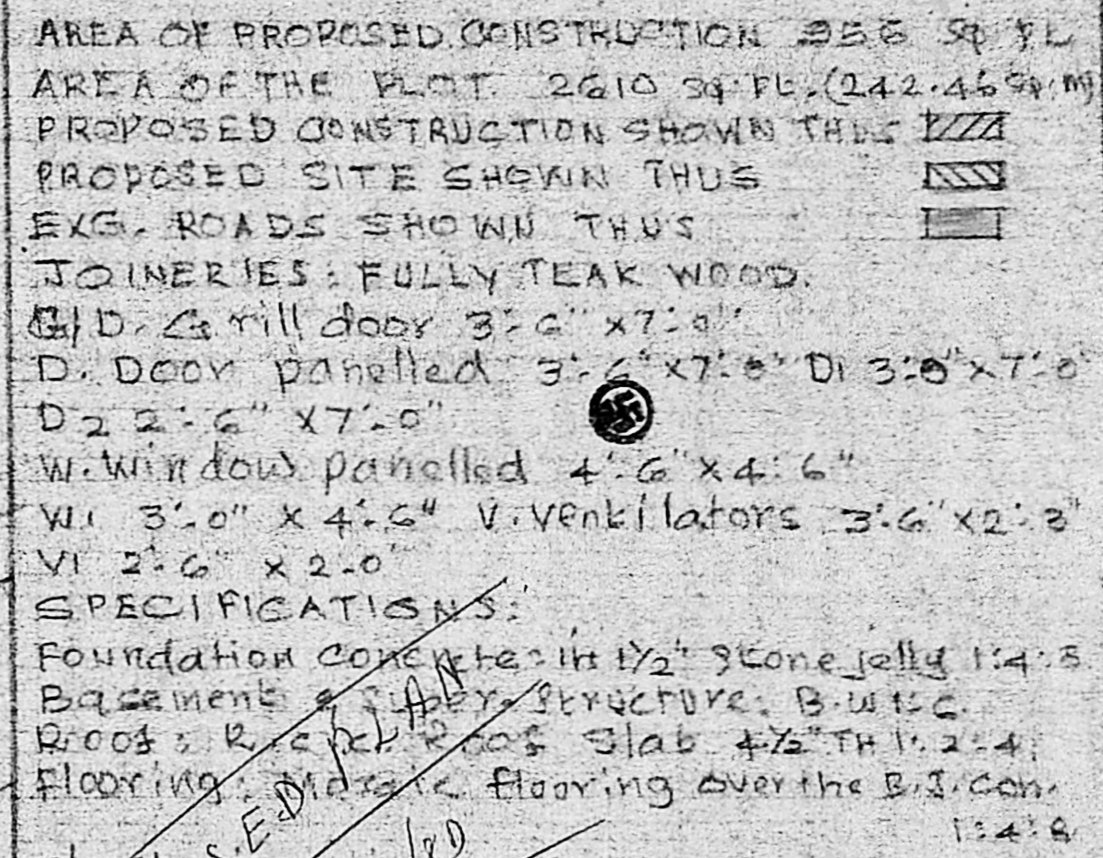 AREA OF PROPOSED CONSTRUCTION 956 SQ FT
AREA OF THE PLOT. 2610 SQ FT. (242.46 SQ.M)
PROPOSED CONSTRUCTION SHOWN THUS
PROPOSED SITE SHOWN THUS
EXG. ROADS SHOWN THUS
JOINERIES: FULLY TEAK WOOD.
G/D. Grill door 3'-6" x7'-0"
D. Door panelled 3'-6" x7'-0" D1 3'-0" x 7'-0"
D2 2'-6" x7'-0"
W. Window panelled 4'-6" x 4'-6"
W1 3'-0" x 4'-6" V. Ventilators 3'-6" x2'-3"
V1 2'-6" x 2-0"
SPECIFICATIONS:
Foundation concrete: in 1½" stone jelly 1:4:8
Basement & Super. structure: B.W
Roof: Roof slab 4½" TH 1:2:4
flooring: Mosaic flooring over the B.J. Con.
1:4:8
PLAN